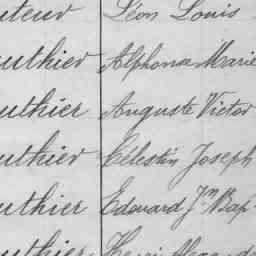 uteur Léon Louis
uthier Alphonse Marie
uthier Auguste Victor
uthier Célestin Joseph
uthier Edouard Jn Bap
uthier Henri